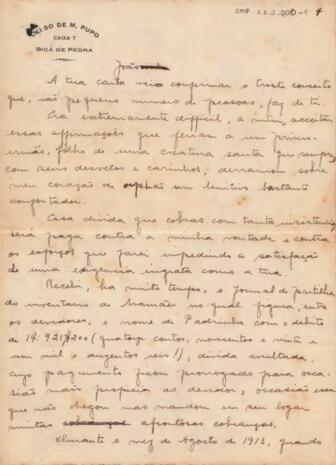 CELSO DE M. PUPO
CAIXA 7
BICA DE PEDRA
CMP 1.1.2.900-1 4
João
A tua carta veio confirmar o triste conceito
que, não pequeno numero de pessoas, faz de ti.
Era extremamente difficil, a mim, acceitar
essas affirmações que feriam a um primo
irmão, filho de uma creatura santa que sempre,
com seus desvelos e carinhos, derramou sobre
meu coração de orphão um lenitivo bastante
confortador.
Essa divida que cobras com tanta insistencia
será paga contra a minha vontade e contra
os esforços que farei impedindo a satisfação
de uma exigencia ingrata como a tua.
Recebi, ha muito tempo, o jornal de partilha
do inventario de Mamãe no qual figura, entre
os devedores, o nome de Padrinho com o debito
de 14:921$200 (quatorze contos, novecentos e vinte e
um mil e duzentos reis!), divida avultada
cujo pagamento ficou prorogado para occa-
sião mais propicia ao devedor, occasião essa
que não chegou mas mandou em seu logar
muitas affrontosas cobranças.
Durante o mez de Agosto de 1918, quando